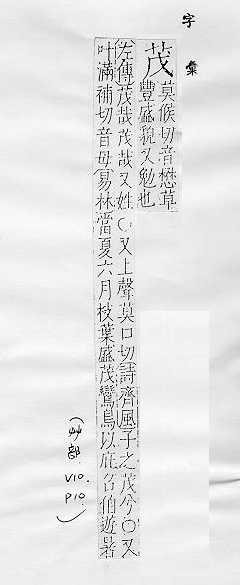 字彙
茂
莫候切音懋草
豐盛貌又勉也
左傳茂哉茂哉又姓〇又上聲莫口切詩齊風子之茂兮〇又
叶滿補切音母易林當夏六月枝葉盛茂鸞鳥以庇召伯避暑
(艸部. V10. P10.)